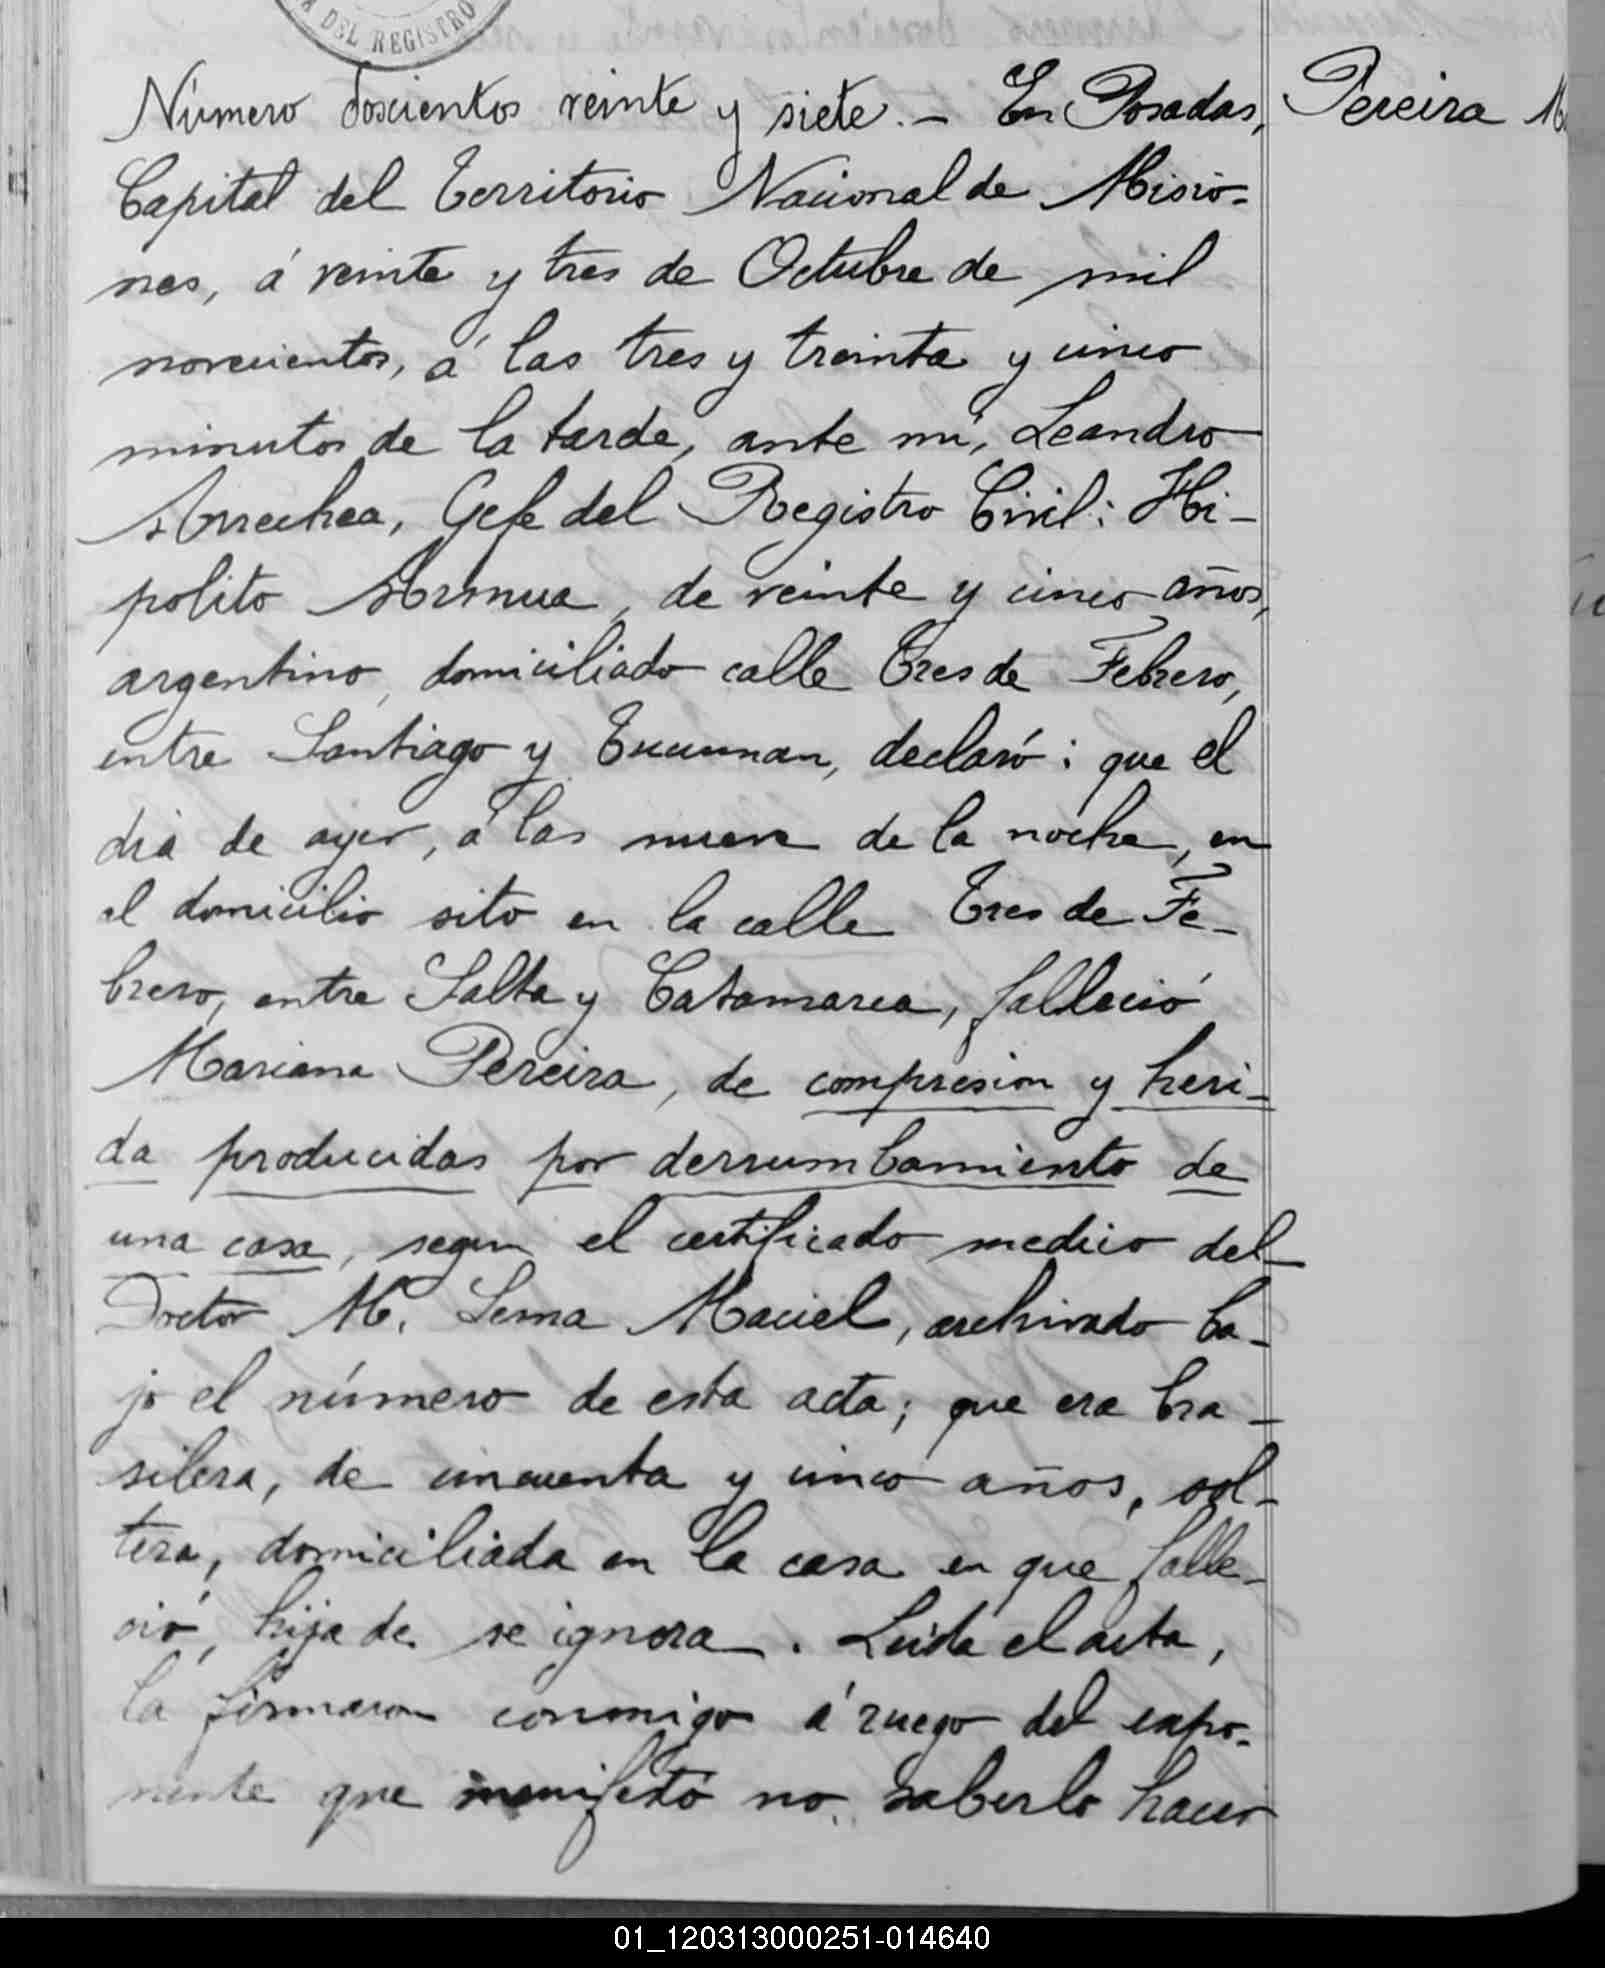 A DEL REGISTRO
Número doscientos veinte y siete.- En Posadas,
Pereira M
Capital del Territorio Nacional de Misio-
nes, á veinte y tres de Octubre de mil
novecientos, á las tres y treinta y cinco
minutos de la tarde, ante mí, Leandro
Arrechea, Gefe del Registro Civil: Hi-
polito Armua, de veinte y cinco años,
argentino, domiciliado calle Tres de Febrero,
entre Santiago y Tucuman, declaró: que el
dia de ayer, á las nueve de la noche, en
el domicilio sito en la calle Tres de Fe-
brero, entre Salta y Catamarca, falleció
Mariana Pereira, de compresion y heri-
da producidas por derrumbamiento de
una casa, segun el certificado medico del
Doctor M. Lema Maciel, archivado ba-
jo el número de esta acta; que era bra-
silera, de cincuenta y cinco años, sol-
tera, domiciliada en la casa en que falle-
ció, hija de se ignora. Leida el acta,
la firmaron conmigo á ruego del expo-
nente que manifestó no saberlo hacer
01_120313000251-014640